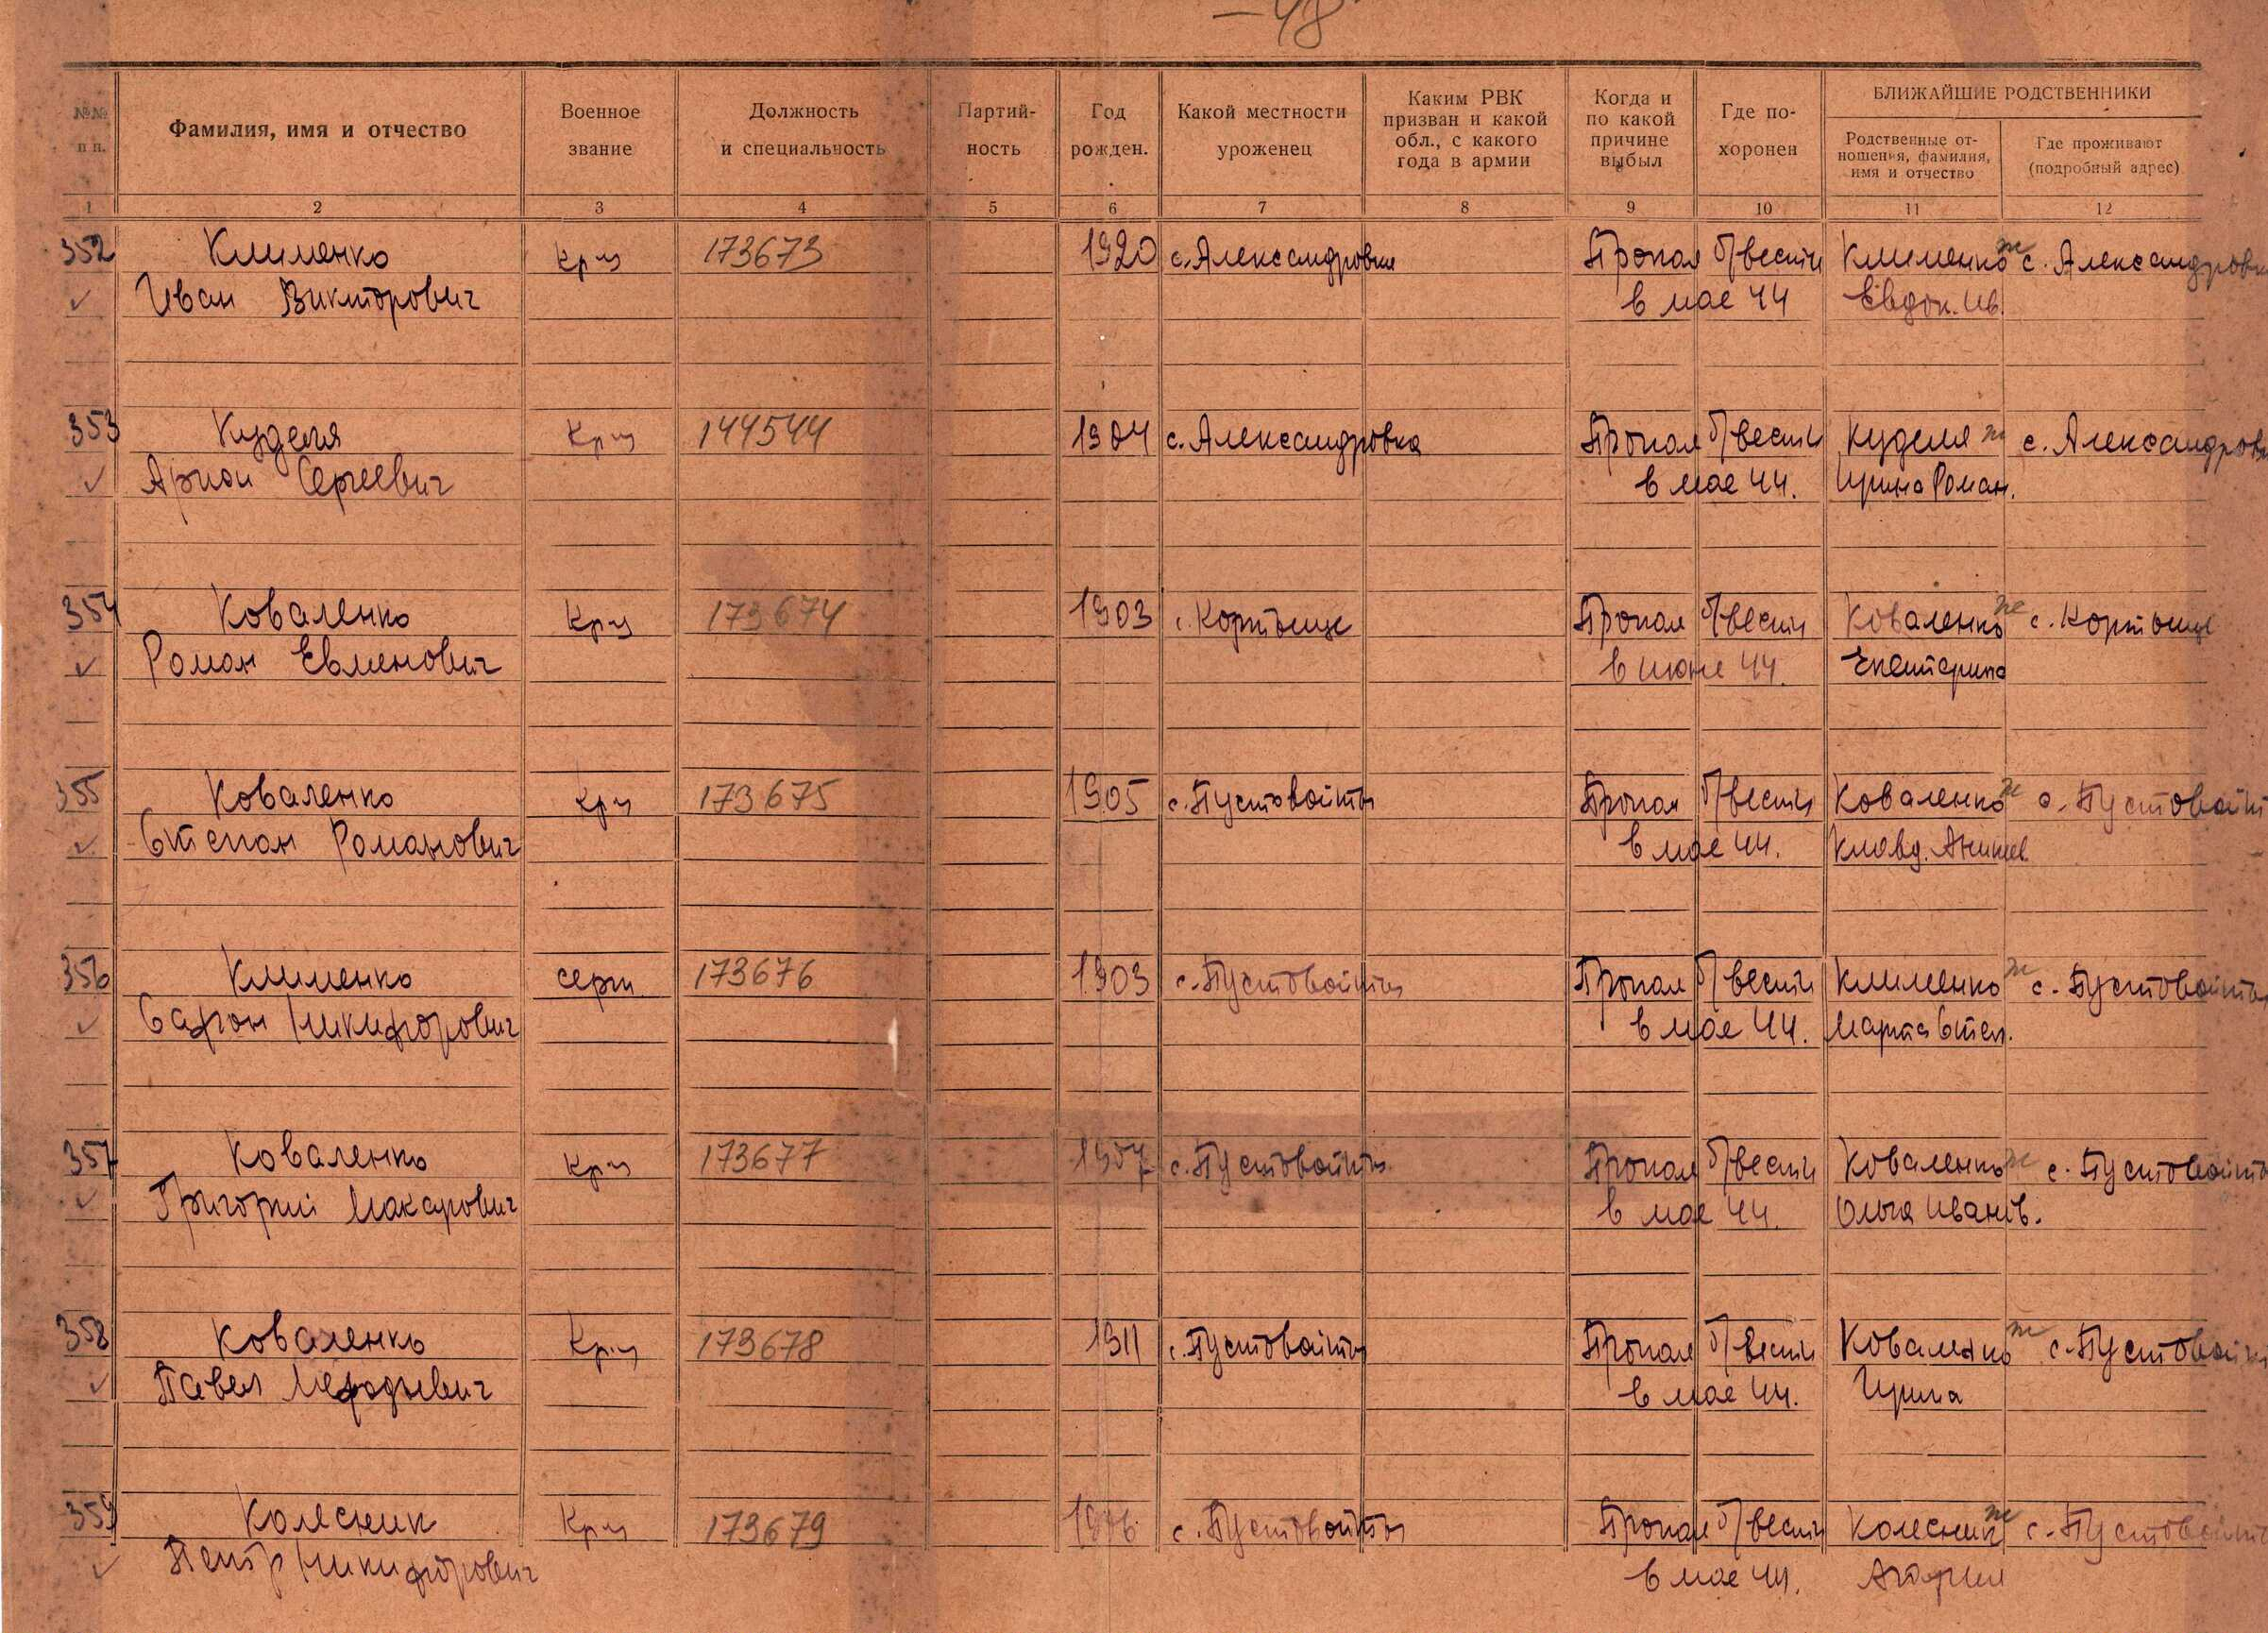 —48
№№ п п.
Фамилия, имя и отчество
Военное звание
Должность и специальность
Партий-ность
Год рожден.
Какой местности уроженец
Каким РВК призван и какой обл., с какого года в армии
Когда и по какой причине выбыл
Где по-хоронен
БЛИЖАЙШИЕ РОДСТВЕННИКИ
Родственные от-ношения, фамилия, имя и отчество
Где проживают (подробный адрес)
1 2 3 4 5 6 7 8 9 10 11 12
352 Клименко кр-ц 173673 1920 с. Александровка Пропал б/вести Клименко ж с. Александровка
Иван Викторович в мае 44 Евдок. Ив.
353 Куделя кр-ц 144544 1904 с. Александровка Пропал б/вести Куделя ж с. Александровка
Сергеевич в мае 44. Ирина Роман.
354 Коваленко кр-ц 173674 1903 с. Пропал б/вести Коваленко ж с.
Роман Евменович в июне 44. Екатерина
355 Коваленко кр-ц 173675 1905 с. Пустовойты Пропал б/вести Коваленко ж с. Пустовойт
Степан Романович в мае 44. Клавд.
356 Клименко серж. 173676 1903 с. Пустовойты Пропал б/вести Клименко ж с. Пустовойты
Сафон Никифорович в мае 44. Марта Степ.
357 Коваленко кр-ц 173677 1907 с. Пустовойты Пропал б/вести Коваленко ж с. Пустовойты
Григорий Макарович в мае 44. Ольга Иванов.
358 Коваленко кр-ц 173678 1911 с. Пустовойты Пропал б/вести Коваленко ж с. Пустовойт
Павел Мефодиевич в мае 44. Ирина
359 Колесник кр-ц 173679 1906 с. Пустовойты Пропал б/вести Колесник ж с. Пустовойт
Петр Никифорович в мае 44.